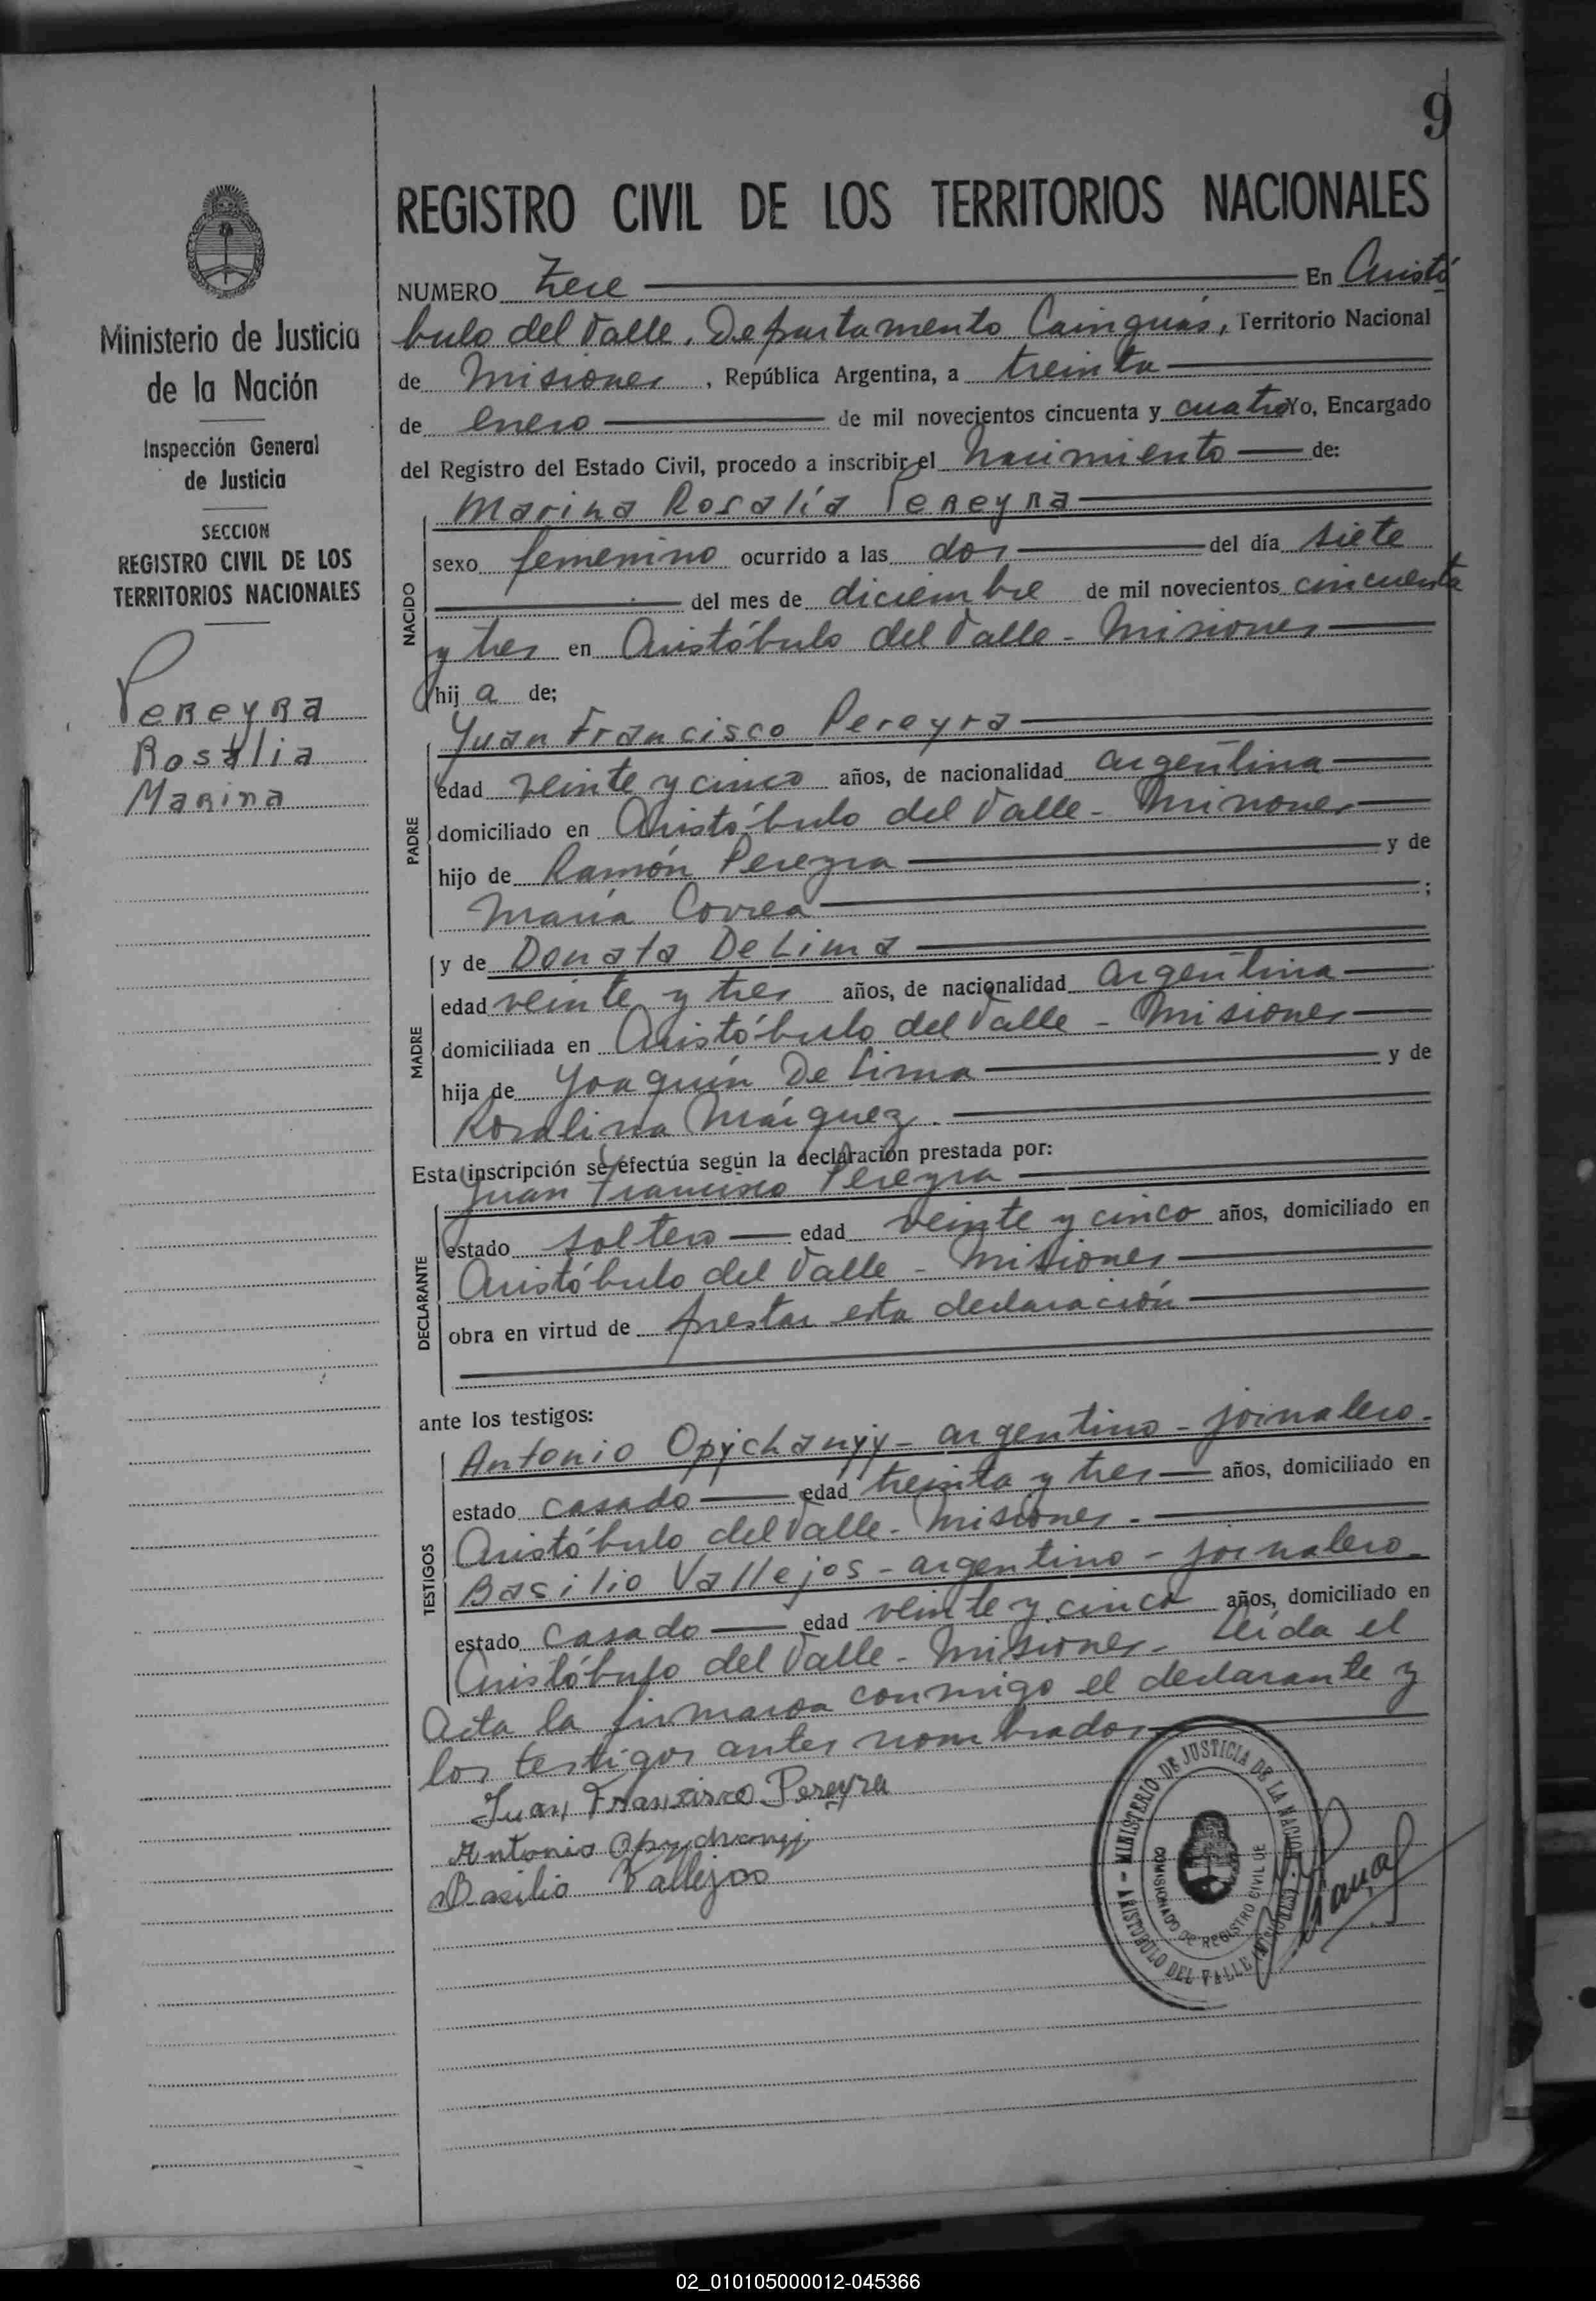 9
REGISTRO CIVIL DE LOS TERRITORIOS NACIONALES
NUMERO Trece En Aristó
bulo del Valle, Departamento Cainguás, Territorio Nacional
de Misiones, República Argentina, a treinta
de enero de mil novecientos cincuenta y cuatro Yo, Encargado
del Registro del Estado Civil, procedo a inscribir el Nacimiento de:
Marina Rosalía Pereyra
sexo femenino ocurrido a las dos del día siete
del mes de diciembre de mil novecientos cincuenta
y tres en Aristóbulo del Valle - Misiones
hija de;
NACIDO
Juan Francisco Pereyra
edad veinte y cinco años, de nacionalidad argentina
domiciliado en Aristóbulo del Valle - Misiones
hijo de Ramón Pereyra y de
María Correa ;
PADRE
y de Donata De Lima
edad veinte y tres años, de nacionalidad argentina
domiciliada en Aristóbulo del Valle - Misiones
hija de Joaquín De Lima y de
Rosalina Márquez.
MADRE
Esta inscripción se efectúa según la declaración prestada por:
Juan Francisco Pereyra
estado soltero edad veinte y cinco años, domiciliado en
Aristóbulo del Valle - Misiones
obra en virtud de prestar esta declaración
DECLARANTE
ante los testigos:
Antonio Opychanyj - argentino - jornalero -
estado casado edad treinta y tres años, domiciliado en
Aristóbulo del Valle - Misiones -
Basilio Vallejos - argentino - jornalero -
estado casado edad veinte y cinco años, domiciliado en
Aristóbulo del Valle - Misiones - Leída el
TESTIGOS
Acta la firmaron conmigo el declarante y
los testigos antes nombrados
Juan Francisco Pereyra
Antonio Opychanyj
Basilio Vallejos
MINISTERIO DE JUSTICIA DE LA NACION
COMISIONADO DE REGISTRO CIVIL DE
ARISTOBULO DEL VALLE (MISIONES)
Ministerio de Justicia
de la Nación
Inspección General
de Justicia
SECCION
REGISTRO CIVIL DE LOS
TERRITORIOS NACIONALES
Pereyra
Rosalia
Marina
02_010105000012-045366